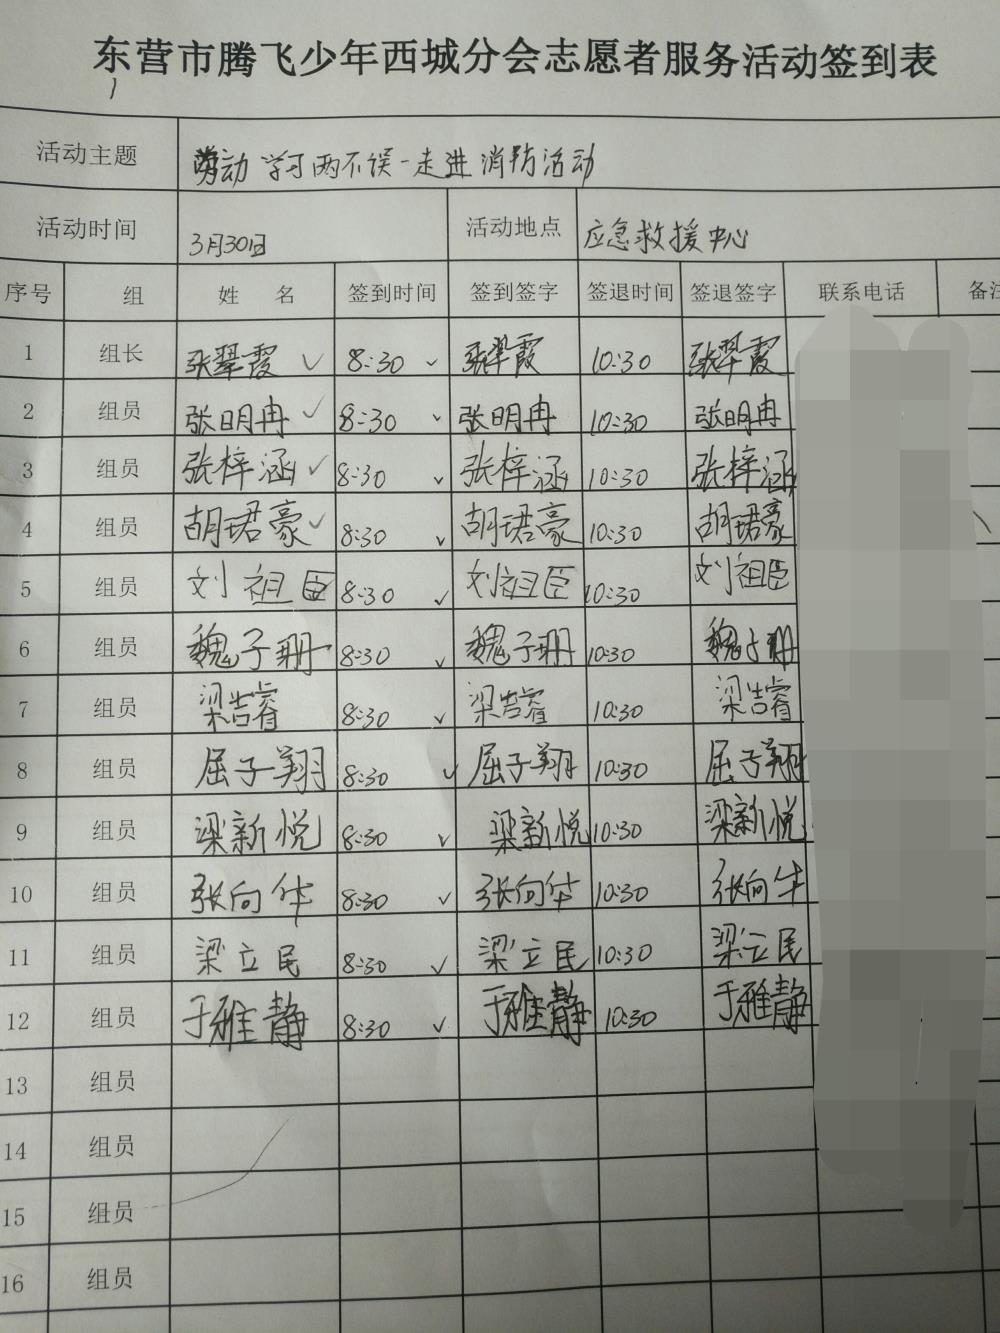 东营市腾飞少年西城分会志愿者服务活动签到表
活动主题 劳动 学习两不误-走进消防活动
活动时间 3月30日 活动地点 应急救援中心
序号 组 姓 名 签到时间 签到签字 签退时间 签退签字 联系电话 备注
1 组长 张翠霞 ✓ 8:30 ✓ 张翠霞 10:30 张翠霞
2 组员 张明冉 ✓ 8:30 ✓ 张明冉 10:30 张明冉
3 组员 张梓涵 ✓ 8:30 ✓ 张梓涵 10:30 张梓涵
4 组员 胡珺豪 ✓ 8:30 ✓ 胡珺豪 10:30 胡珺豪
5 组员 刘祖臣 8:30 ✓ 刘祖臣 10:30 刘祖臣
6 组员 魏子珊 8:30 ✓ 魏子珊 10:30 魏子珊
7 组员 梁吉睿 8:30 ✓ 梁吉睿 10:30 梁吉睿
8 组员 屈子翔 8:30 ✓ 屈子翔 10:30 屈子翔
9 组员 梁新悦 8:30 ✓ 梁新悦 10:30 梁新悦
10 组员 张向华 8:30 ✓ 张向华 10:30 张向华
11 组员 梁立民 8:30 ✓ 梁立民 10:30 梁立民
12 组员 于雅静 8:30 ✓ 于雅静 10:30 于雅静
13 组员
14 组员
15 组员
16 组员